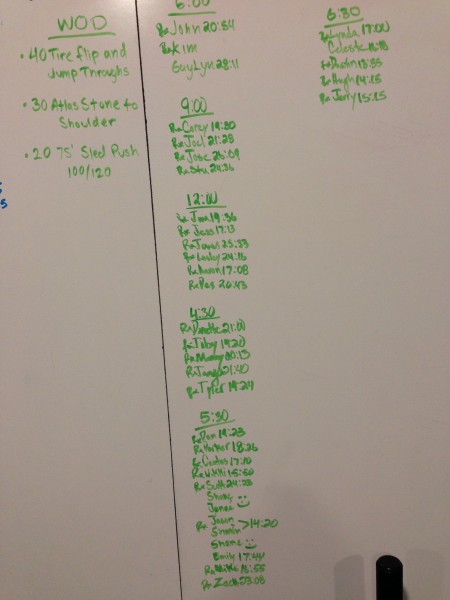 WOD
• 40 Tire flip and
Jump Throughs
• 30 Atlas Stone to
Shoulder
• 20 75' Sled Push
100/120
6:00
Rx John 20:54
Rx Kim
GuyLyn 28:11
9:00
Rx Corey 19:30
Rx Joel 21:28
Rx Jose 26:09
Rx Stu 24:36
12:00
Rx 19:36
Rx Jess 17:13
Rx
Rx Lesley 24:16
Rx 17:08
Rx 20:43
4:30
Rx 21:00
Rx Toby 19:20
Rx
Rx 21:40
Rx Tyler 19:24
5:30
Rx Dan 19:23
Rx 18:26
Rx
Rx Nikki 15:50
Rx Scott 24:28
Rx Jason >14:20
Emily 17:44
Rx Mike 18:55
Rx Zach 23:08
6:30
Rx Lynda 17:00
Celeste
Rx Dustin
Rx Hugh 14:15
Rx Jerry 15:15